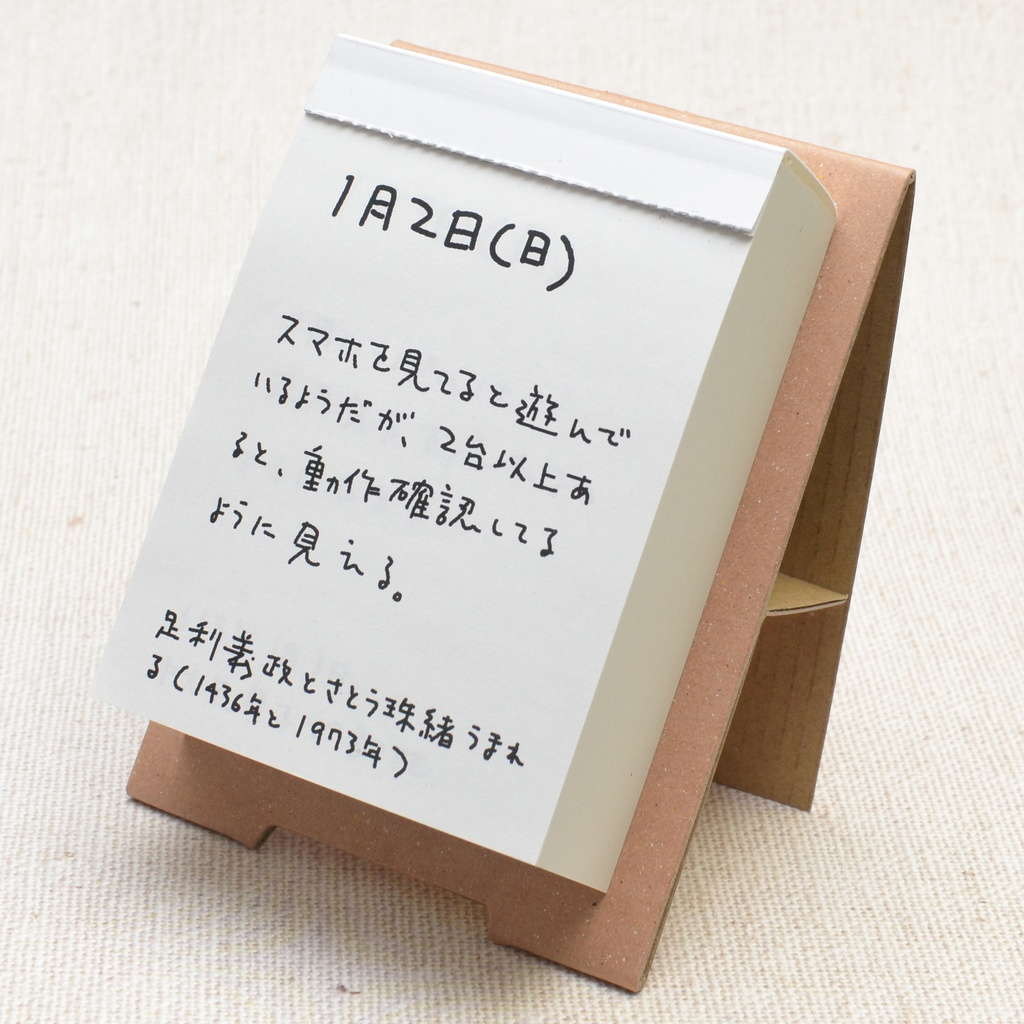 1月2日(日)
スマホを見てると遊んで
いるようだが、2台以上あ
ると、動作確認してる
ように見える。
足利義政とさとう珠緒うまれ
る(1436年と1973年)